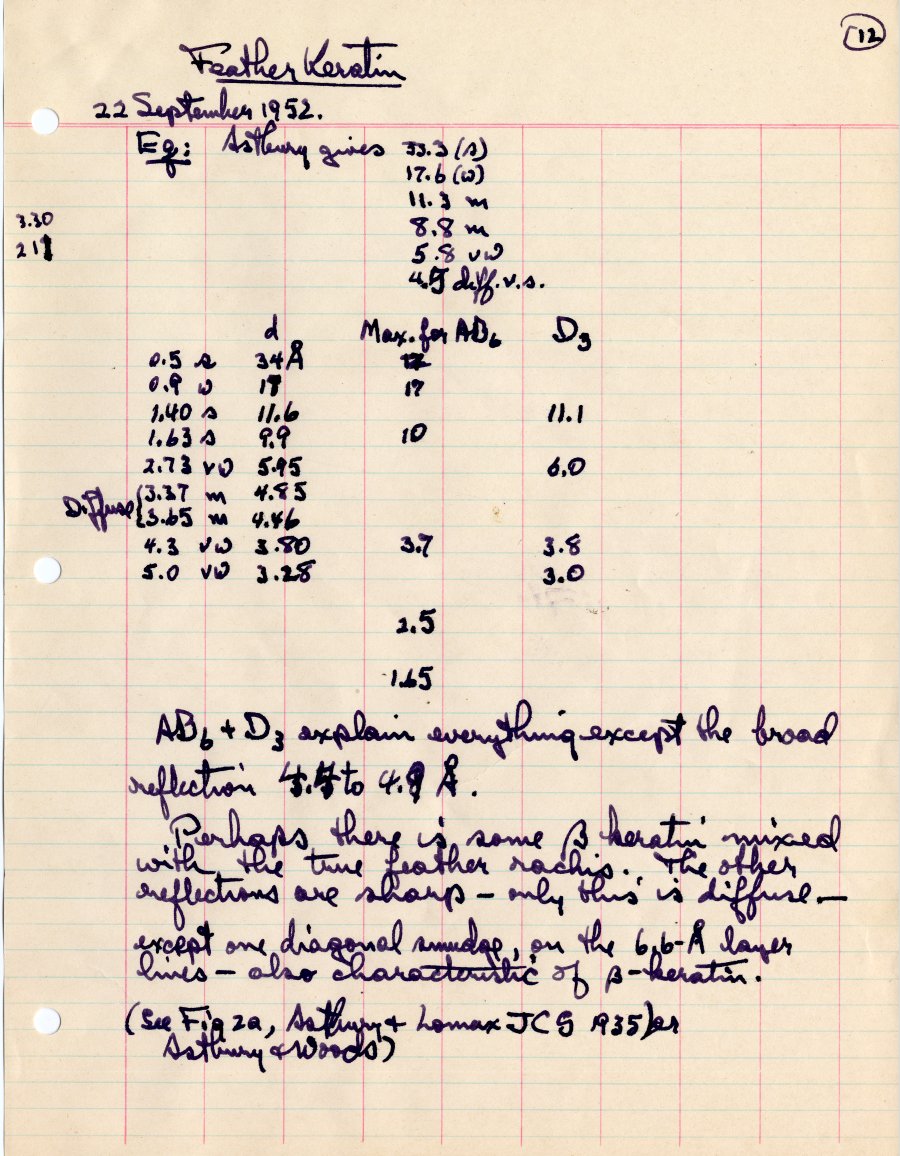 12
Feather Keratin
22 September 1952.
Eq: Astbury gives 33.3 (s)
17.6 (w)
11.3 m
8.8 m
5.8 vw
4.5 diff. v.s.
3.30
211
d Max. for AB6 D3
0.5 s 34 Å
0.9 w 17 17
1.40 s 11.6 11.1
1.63 s 9.9 10
2.73 vw 5.95 6.0
Diffuse { 3.37 m 4.85
3.65 m 4.46
4.3 vw 3.80 3.7 3.8
5.0 vw 3.28 3.0
2.5
1.65
AB6 + D3 explain everything except the broad
reflection to 4.9 Å.
Perhaps there is some β keratin mixed
with the true feather rachis. The other
reflections are sharp – only this is diffuse –
except one diagonal smudge, on the 6.6-Å layer
lines – also characteristic of β-keratin.
(See Fig 2a, Astbury + Lomax JCS 1935) or
Astbury & Woods)